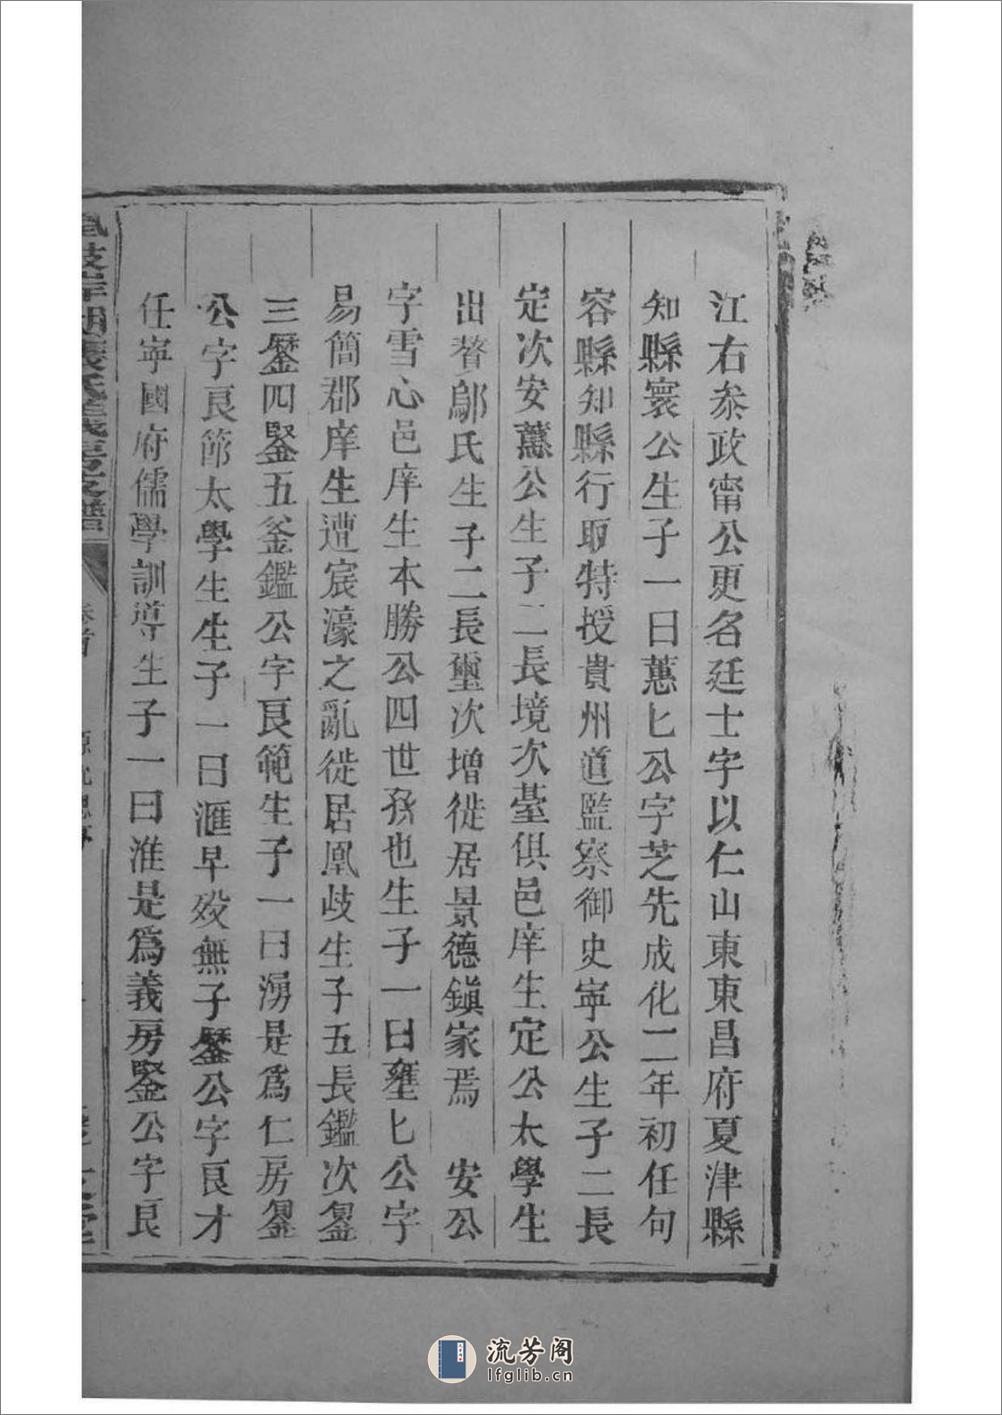 江右叅政甯公更名廷士字以仁山東東昌府夏津縣
知縣寰公生子一曰蕙匕公字芝先成化二年初任句
容縣知縣行取特授貴州道監察御史寧公生子二長
定次安蕙公生子二長境次臺俱邑庠生定公太學生
出贅鄔氏生子二長璽次增徙居景德鎮家焉 安公
字雪心邑庠生本勝公四世孫也生子一曰壅匕公字
易簡郡庠生遭宸濠之亂徙居鳳歧生子五長鑑次鋆
三鏧四鋻五釜鑑公字良範生子一曰湧是爲仁房鋆
公字良節太學生生子一曰滙早歿無子鏧公字良才
任寧國府儒學訓導生子一曰淮是爲義房鋻公字良
張氏義房支譜
卷首
流芳阁
lfglib.cn